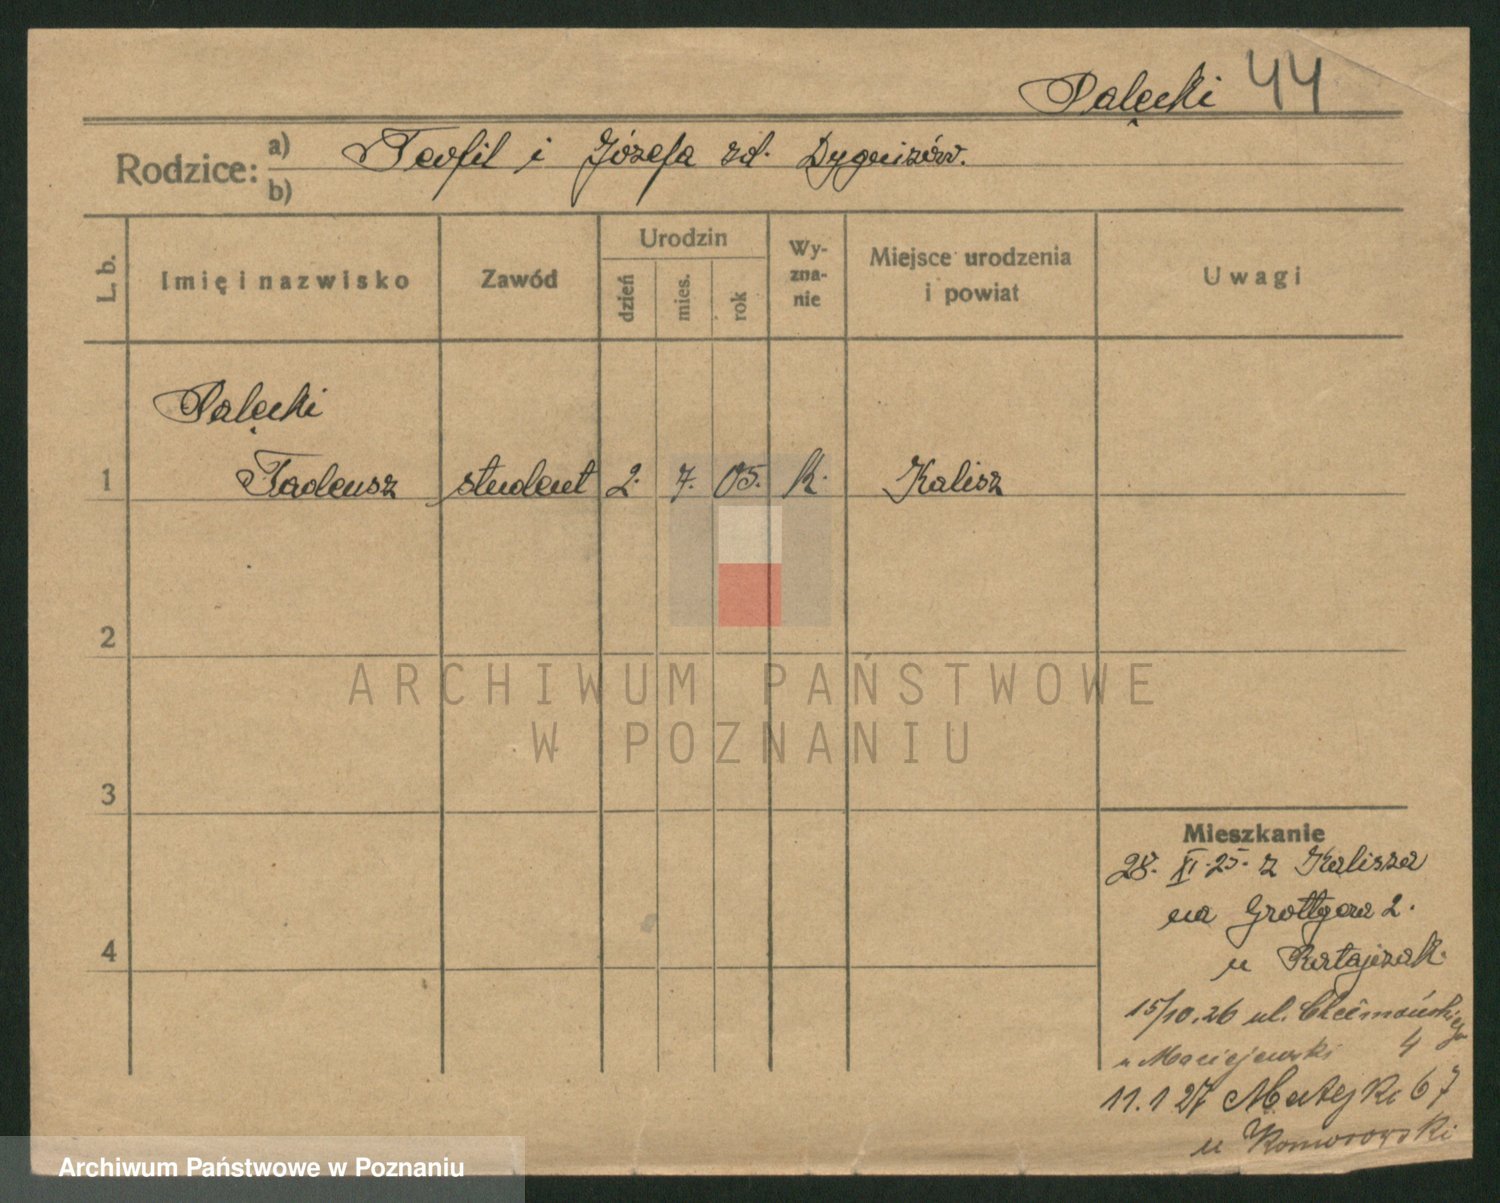 Pałęcki 44
Rodzice: a) Teofil i Józefa zd. Dygnizów.
b)
L. b.
Imię i nazwisko
Zawód
Urodzin
dzień
mies.
rok
Wy-
zna-
nie
Miejsce urodzenia
i powiat
Uwagi
Palęcki
1 Tadeusz student 2. 7. 05. k. Kalisz
2
ARCHIWUM PAŃSTWOWE
W POZNANIU
3
4
Mieszkanie
28. XI. 25. z Kalisza
na Grottgera 2.
u Ratajczak.
15/10.26 ul. Chełmońskiego
u Maciejewski 4
11.1 27 Matejki 67
u Komorowski
Archiwum Państwowe w Poznaniu